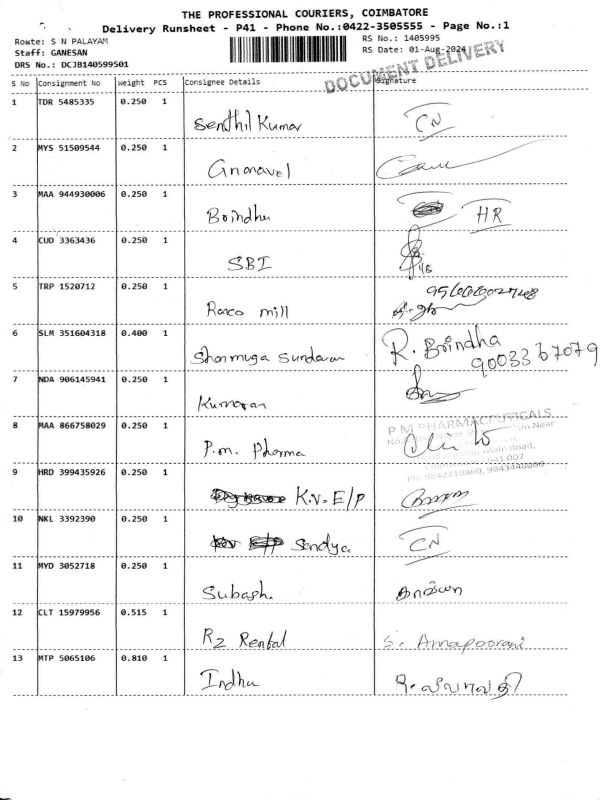 THE PROFESSIONAL COURIERS, COIMBATORE
Delivery Runsheet - P41 - Phone No.:0422-3505555 - Page No.:1
Route: S N PALAYAM
RS No.: 1405995
Staff: GANESAN
RS Date: 01-Aug-2024
DRS No.: DCJB140599501
DOCUMENT DELIVERY
S No Consignment No Weight PCS Consignee Details Signature
1 TDR 5485335 0.250 1 Senthil Kumar CN
2 MYS 51509544 0.250 1 Gnanavel
3 MAA 944930006 0.250 1 Brindha HR
4 CUD 3363436 0.250 1 SBI
5 TRP 1520712 0.250 1 Roxco mill
6 SLM 351604318 0.400 1 Shanmuga Sundaram R. Brindha
9003367079
7 NDA 906145941 0.250 1 Kumaran
8 MAA 866758029 0.250 1 P.M. Pharma
P M PHARMACEUTICALS
Ph: 9842219860, 9843448000
9 HRD 399435926 0.250 1 K.V. E/P
10 NKL 3392390 0.250 1 Sandya CN
11 MYD 3052718 0.250 1 Subash. காவ்யா
12 CLT 15979956 0.515 1 R2 Rental S. Annapoorani
13 MTP 5065106 0.810 1 Indhu